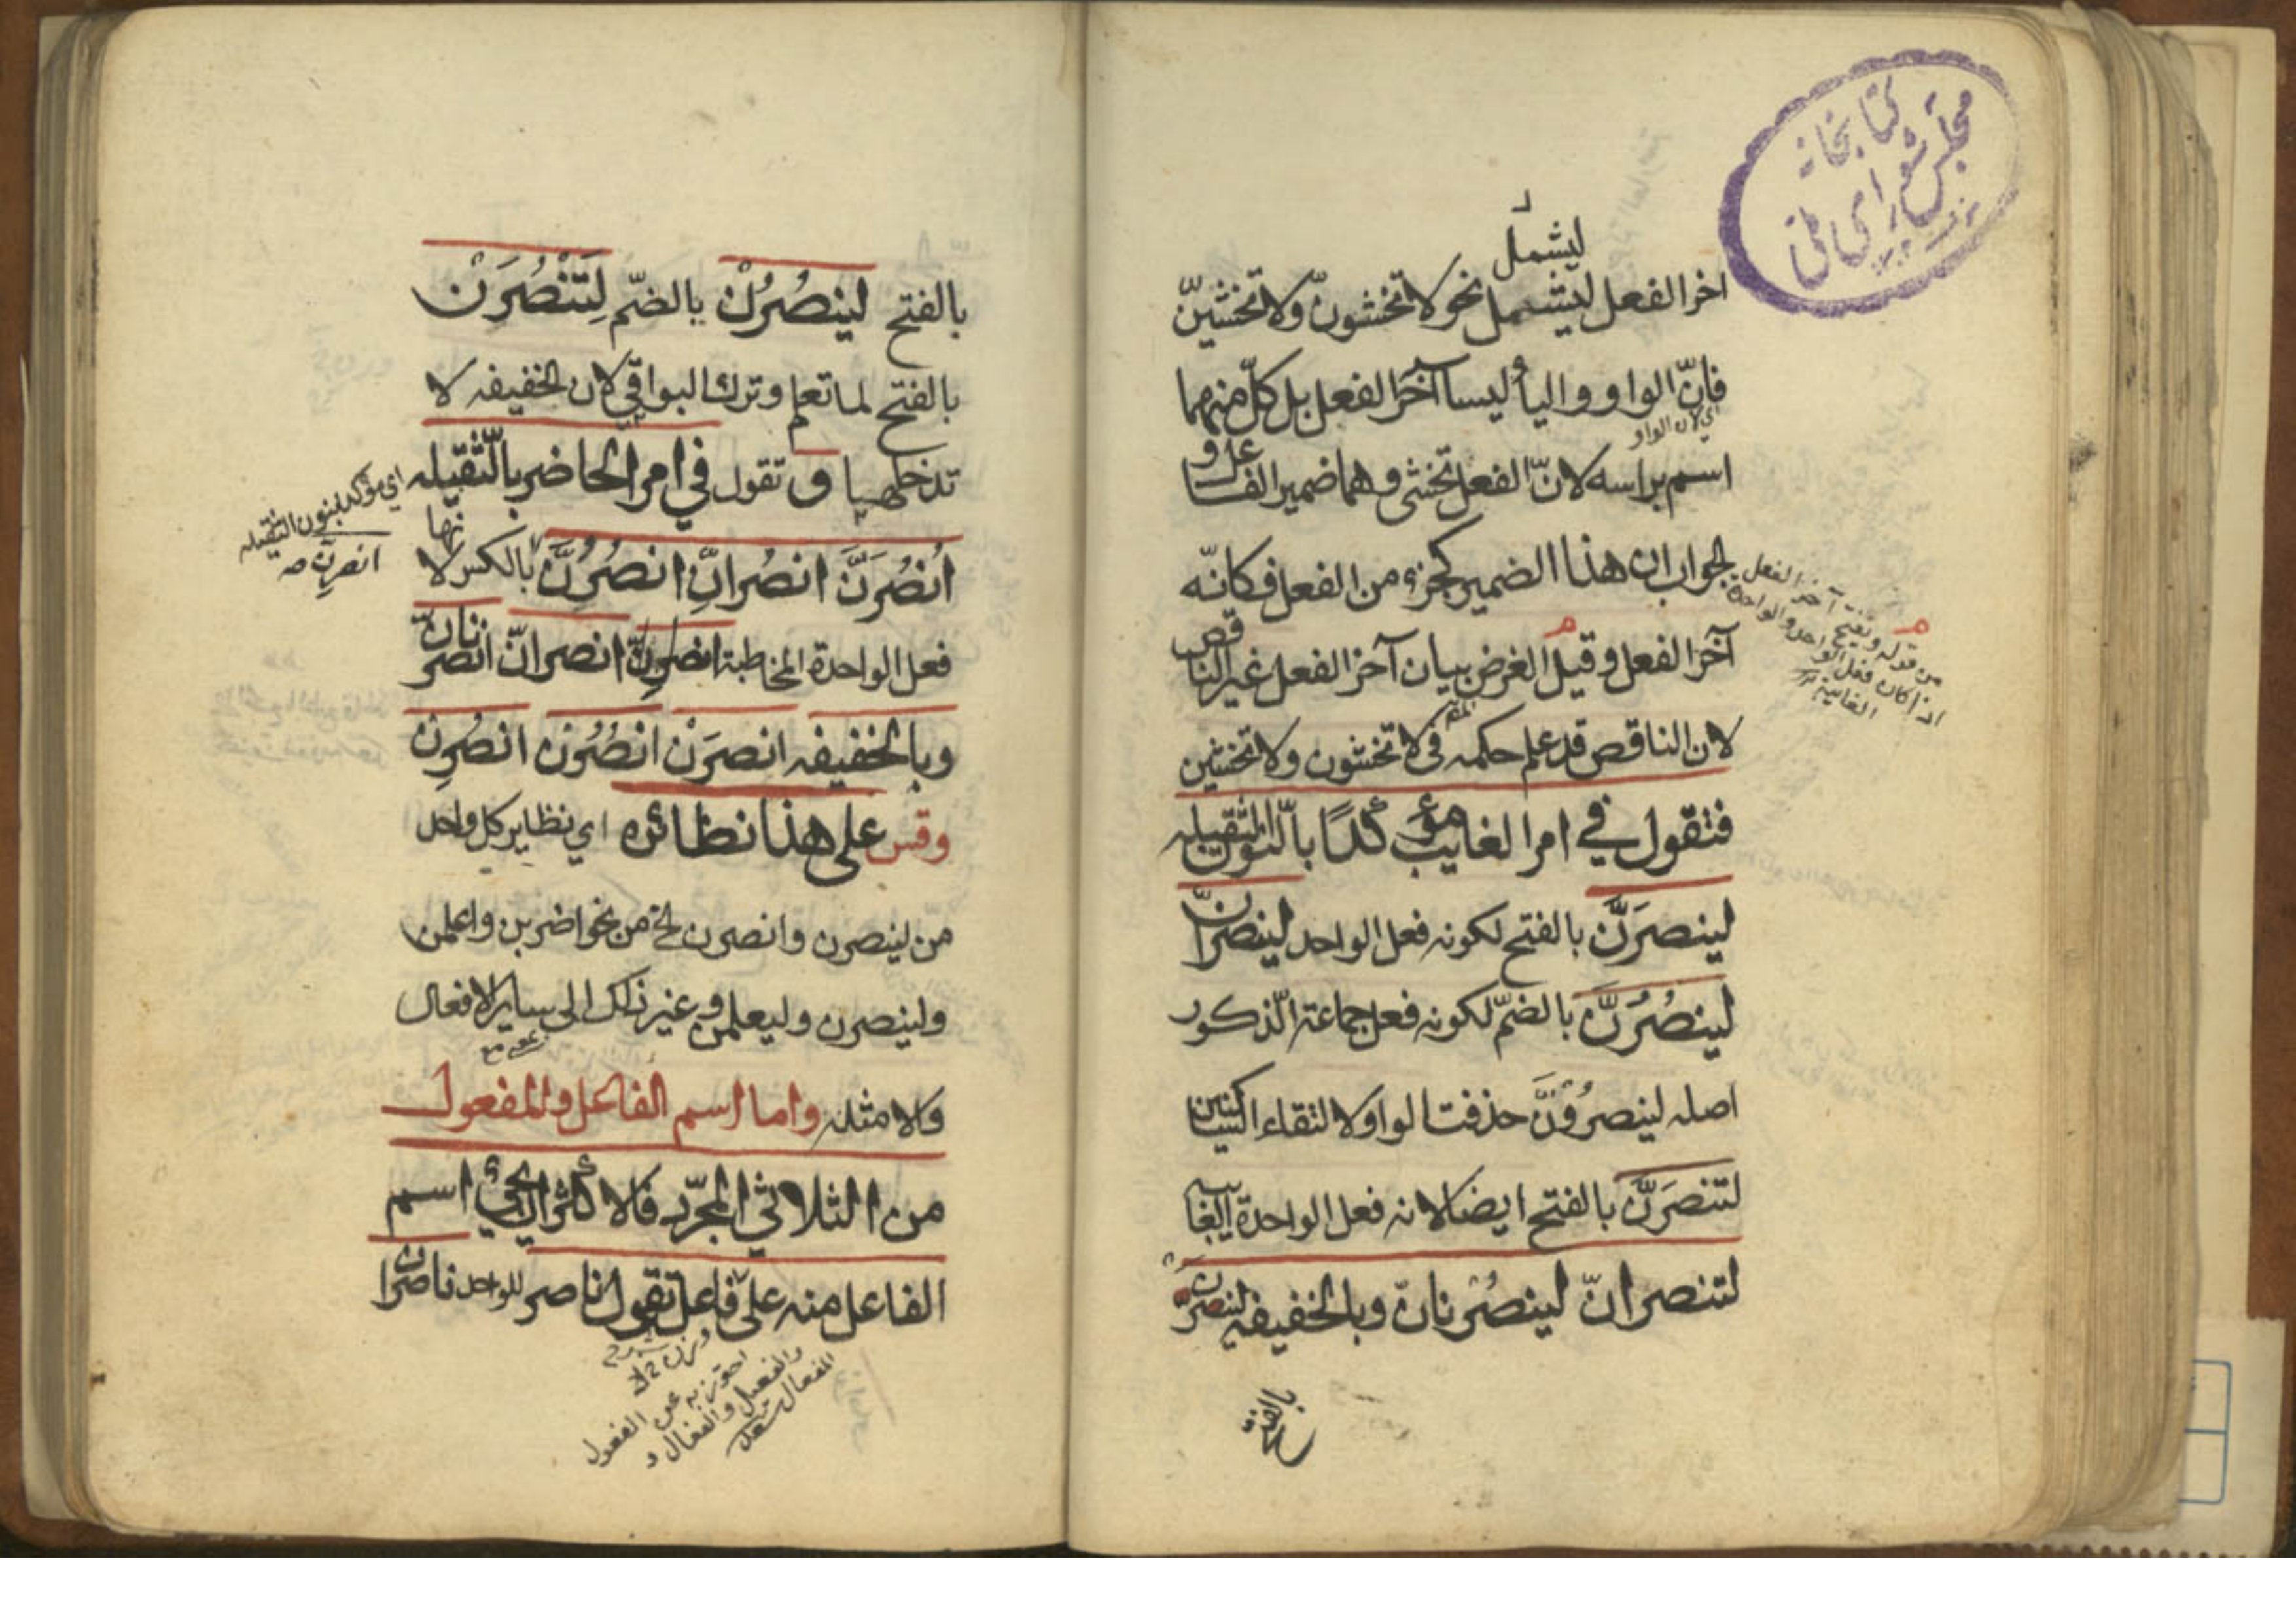 كتابخانه
مجلس شورای ملی
ليشمل
اخر الفعل ليشمل نحو لا تخشونّ ولا تخشينّ
فانّ الواو والياء ليسا آخر الفعل بل كلّ منهما
اي لان الواو
اسم براسه لانّ الفعل تخشى وهما ضمير الفاعل و
الجواب ان هذا الضمير كجزء من الفعل فكانّه
آخر الفعل وقيل الغرض بيان آخر الفعل غير الناقص
لان الناقص قد علم حكمه في لا تخشون ولا تخشين
فتقول في امر الغايب مؤكّدًا بالنّون الثّقيله
لينصرَنَّ بالفتح لكونه فعل الواحد لينصرانّ
لينصُرُنَّ بالضمّ لكونه فعل جماعة الذّكور
اصله لينصرُونَّ حذفت الواو لالتقاء الساكنين
لتنصَرَنَّ بالفتح ايضا لانه فعل الواحدة الغايبه
لتنصرانّ لينصُرنانّ وبالخفيفه لينصرن
بالفتح
من قوله ويفتح آخر الفعل
اذا كان فعل الواحد والواحدة
الغايبة
بالفتح لينصُرُنْ بالضمّ لِتَنْصُرَنْ
بالفتح لما تعلم وترك البواقي لان الخفيفه لا
تدخلها و تقول في امر الحاضر بالثّقيله
اي مؤكد بنون الثقيله
اُنصُرَنَّ انصُرانِّ انصُرُنَّ بالكسر لانها
فعل الواحدة المخاطبة انصرانّ انصرنانّ
وبالخفيفه انصرَنْ انصُرُن انصُرِن
وقس على هذا نظائره اي نظاير كل واحد
من لينصرن وانصرن الخ من نحو اضربن واعلمن
ولينصرن وليعلمن وغير ذلك الى ساير الافعال
والامثله واما اسم الفاعل والمفعول
من الثلاثي المجرّد فالاكثر ان يجيئ اسم
الفاعل منه على فاعل تقول ناصر للواحد ناصران
احترز به عن الفعول
والفعيل والفعال و
المفعال